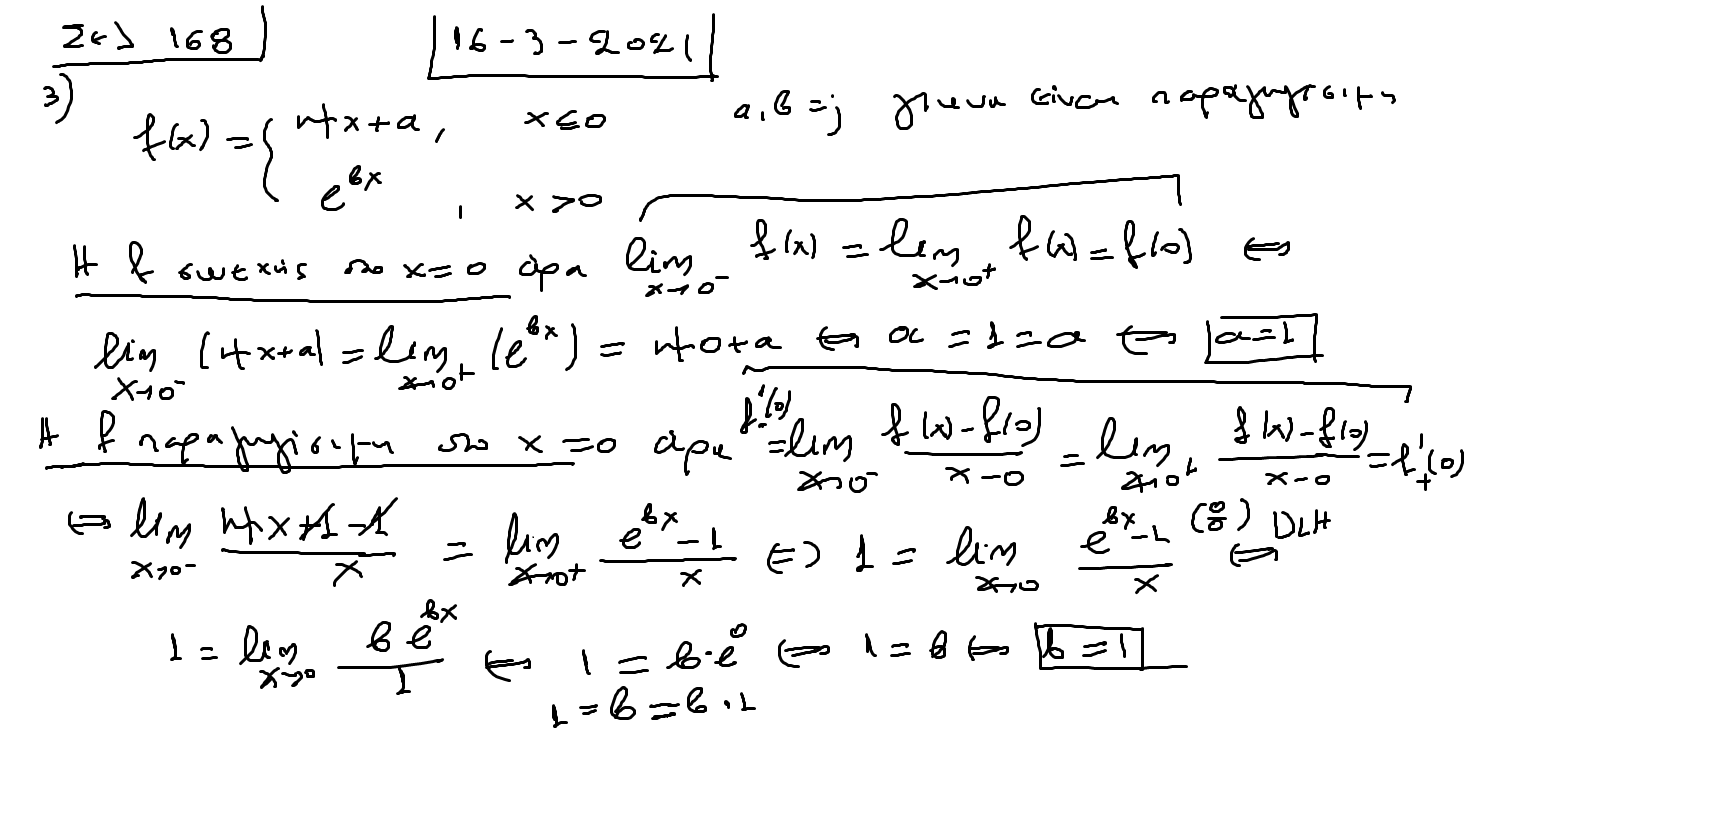 Σελ 168
16-3-2021
3)
f(x) = { ημx+α, x≤0
e^{βx}, x>0
α,β =; για να είναι παραγωγίσιμη
Η f συνεχής στο x=0 άρα lim_{x→0^-} f(x) = lim_{x→0^+} f(x) = f(0) ⇔
lim_{x→0^-} (ημx+α) = lim_{x→0^+} (e^{βx}) = ημ0+α ⇔ α = 1 = α ⇔ α=1
Η f παραγωγίσιμη στο x=0 άρα f'_-(0) = lim_{x→0^-} \frac{f(x)-f(0)}{x-0} = lim_{x→0^+} \frac{f(x)-f(0)}{x-0} = f'_+(0)
⇔ lim_{x→0^-} \frac{ημx+1-1}{x} = lim_{x→0^+} \frac{e^{βx}-1}{x} ⇔ 1 = lim_{x→0} \frac{e^{βx}-1}{x} (0/0) DLH ⇔
1 = lim_{x→0} \frac{βe^{βx}}{1} ⇔ 1 = β·e^0 ⇔ 1 = β ⇔ β=1
1 = β = β·1